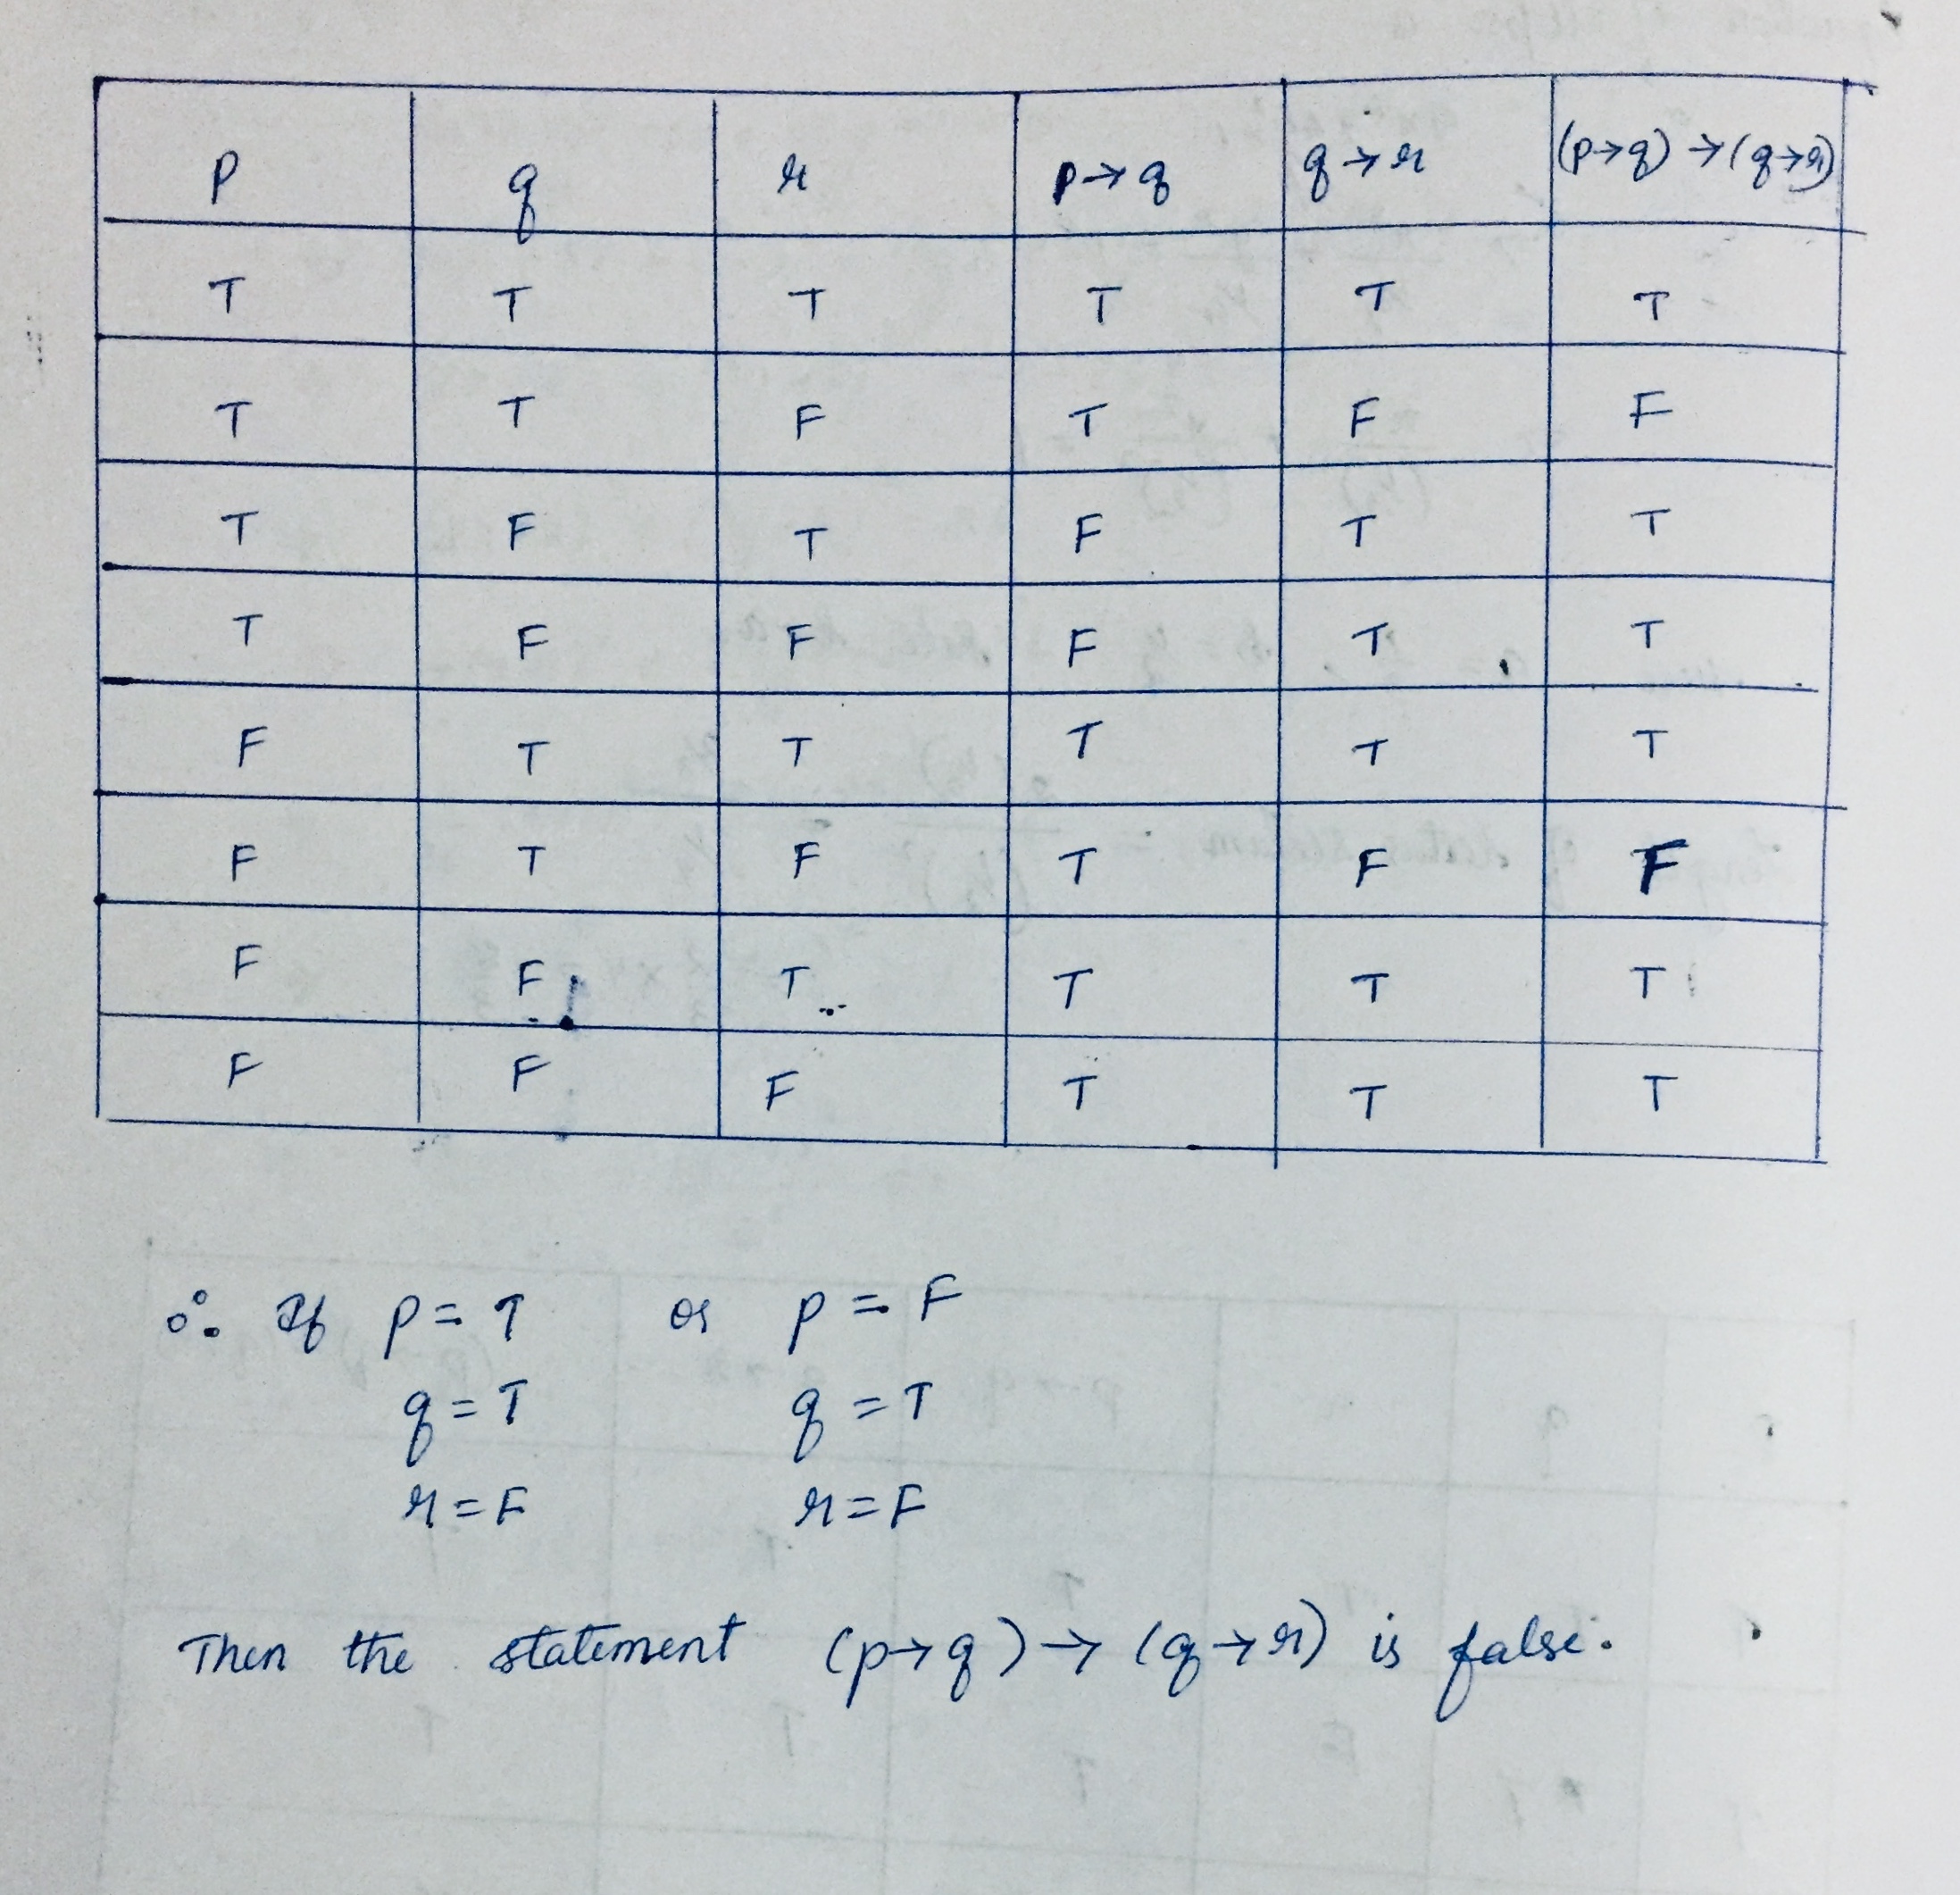 p q r p→q q→r (p→q)→(q→r)
T T T T T T
T T F T F F
T F T F T T
T F F F T T
F T T T T T
F T F T F F
F F T T T T
F F F T T T
∴ If p = T or p = F
q = T q = T
r = F r = F
Then the statement (p→q)→(q→r) is false.